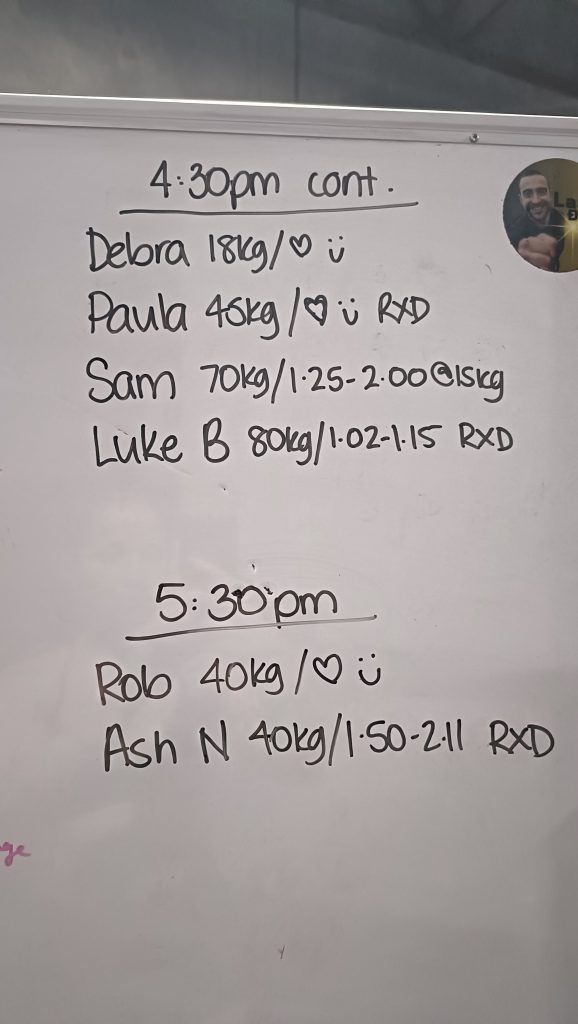 4:30pm cont.
Debra 18kg/♡ ü
Paula 45kg/♡ ü RXD
Sam 70kg/1.25-2.00@15kg
Luke B 80kg/1.02-1.15 RXD
5:30pm
Rob 40kg/♡ ü
Ash N 40kg/1.50-2.11 RXD